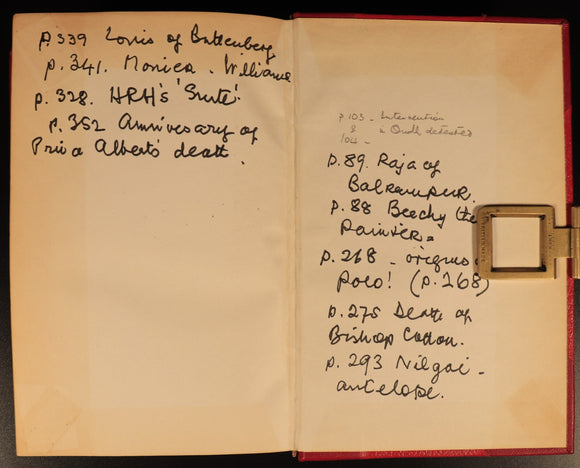 p.339 Louis of Battenberg
p.341. Monica - Williams
p.328. HRH's 'Suite'.
p.352 Anniversary of
Prince Albert's death.
p 103 - Intervention
& in Oudh detested
104 -
p.89. Raja of
Balrampur.
p.88 Beechy the
Painter =
p.268 - origins
Polo! (p.268)
p.275 Death of
Bishop Cotton.
p.293 Nilgai -
antelope.